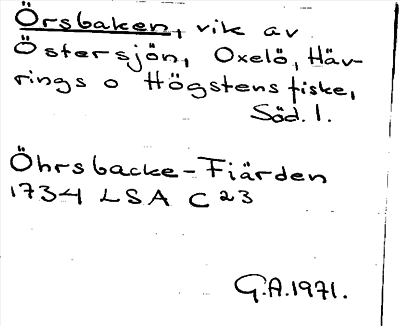 Örsbaken, vik av
Östersjön, Oxelö, Häv-
rings o Högstens fiske,
Söd. l.
Öhrsbacke-Fiärden
1734 LSA C 23
G.A. 1971.